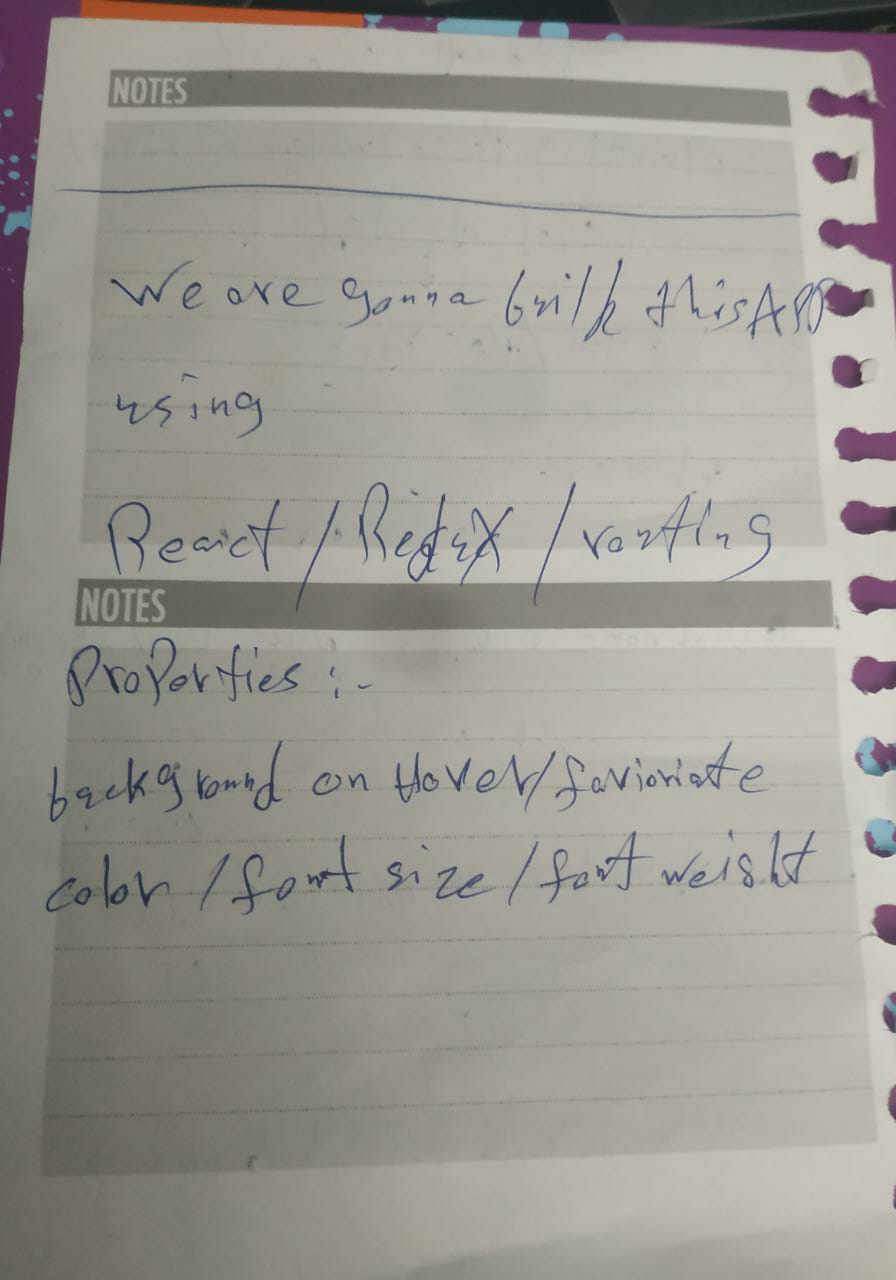 NOTES
We are gonna built this APP
using
React / Redux / routing
NOTES
Properties :-
background on Hover/favioriate
color / font size / font weight